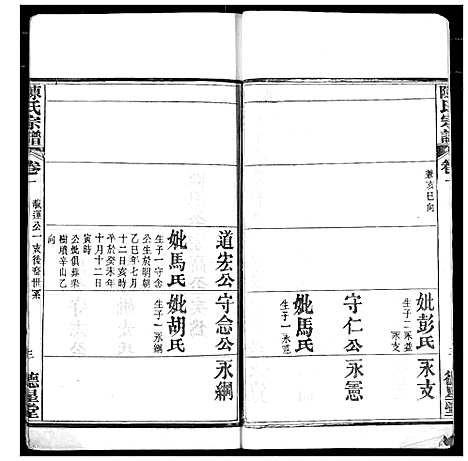 陳氏宗譜
卷一
兼亥巳向
妣彭氏
生子二永益
永支
永支
守仁公
永憲
妣馬氏
生子一永憲
德星堂
道宏公
妣馬氏
生子一守念
公生於明嗣
乙巳年七月
十二日亥時
平於癸未年
十月十二日
寅時
公妣俱葬柴
樹墳辛山乙
向
守念公
永綱
妣胡氏
生子一永綱
陳氏宗譜
卷一
德星堂